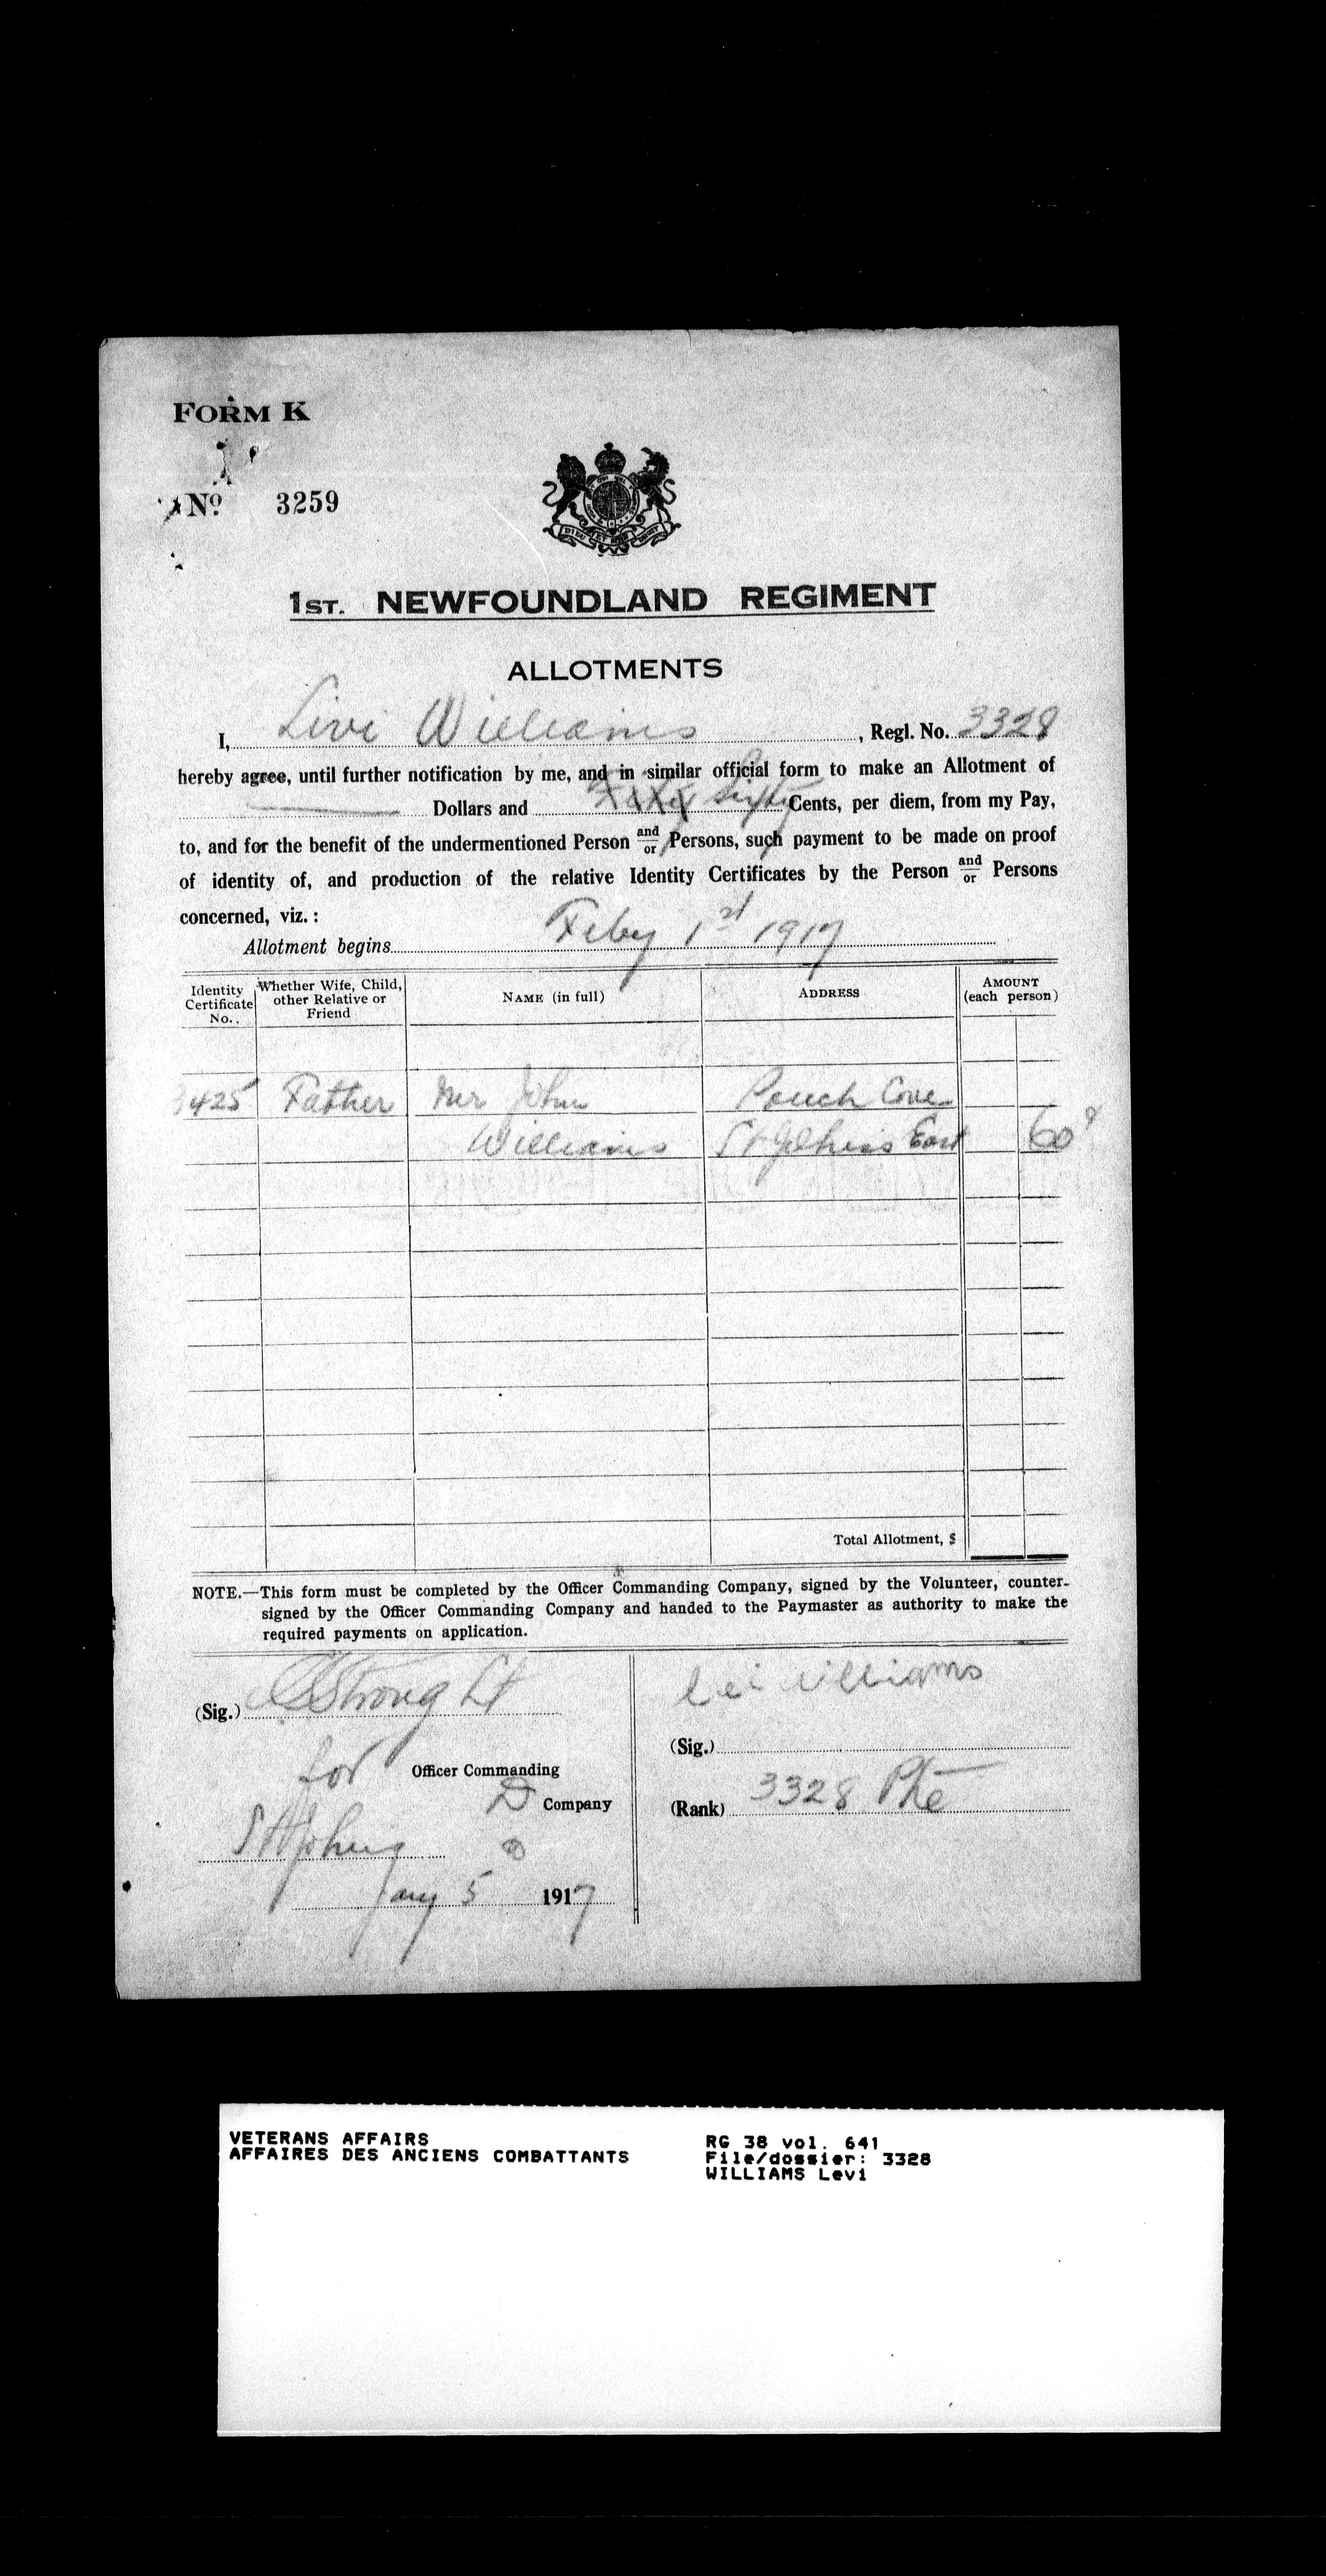 FORM K
No. 3259
1ST. NEWFOUNDLAND REGIMENT
ALLOTMENTS
I, Livi Williams, Regl. No. 3328
hereby agree, until further notification by me, and in similar official form to make an Allotment of
Dollars and Sixty Cents, per diem, from my Pay,
to, and for the benefit of the undermentioned Person and/or Persons, such payment to be made on proof
of identity of, and production of the relative Identity Certificates by the Person and/or Persons
concerned, viz. :
Allotment begins Feby 1st 1917
Identity Certificate No. Whether Wife, Child, other Relative or Friend NAME (in full) ADDRESS AMOUNT (each person)
3425 Father Mr John Pouch Cove
Williams St Johns East 60
Total Allotment, $
NOTE.—This form must be completed by the Officer Commanding Company, signed by the Volunteer, counter-
signed by the Officer Commanding Company and handed to the Paymaster as authority to make the
required payments on application.
(Sig.) Strong Lt
for Officer Commanding
D Company
St Johns
Jany 5 1917
Lei Williams
(Sig.)
(Rank) 3328 Pte
VETERANS AFFAIRS
AFFAIRES DES ANCIENS COMBATTANTS
RG 38 vol. 641
File/dossier: 3328
WILLIAMS Levi